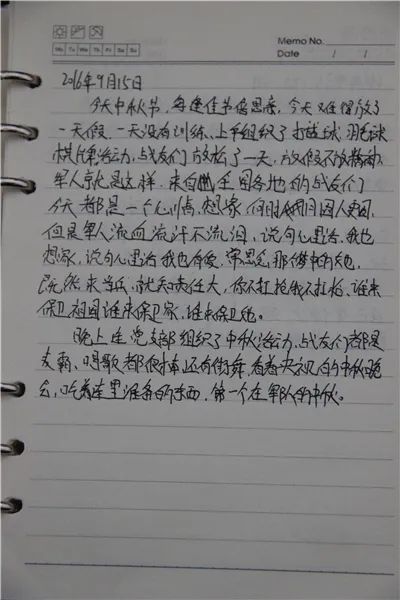 Memo No.
Mo Tu We Th Fr Sa Su
Date / /
2016年9月15日
今天中秋节,每逢佳节倍思亲,今天难得放了
一天假,一天没有训练、上午组织了打篮球,羽毛球
棋牌活动,战友们放松了一天,放假不放精神,
军人就是这样,来自全国各地的战友们
今天都是一个心情,想家,何时明月因人更圆,
但是军人流血流汗不流泪,说句心里话,我也
想家,说句心里话我也有爱,常思念那个梦中的她,
既然来当兵,就知责任大,你不扛枪我不扛枪、谁来
保卫祖国谁来保卫家,谁来保卫她。
晚上连党支部组织了中秋活动,战友们都是
麦霸、唱歌都很棒还有街舞,看着央视的中秋晚
会,吃着连里准备的东西,第一个在军队的中秋。